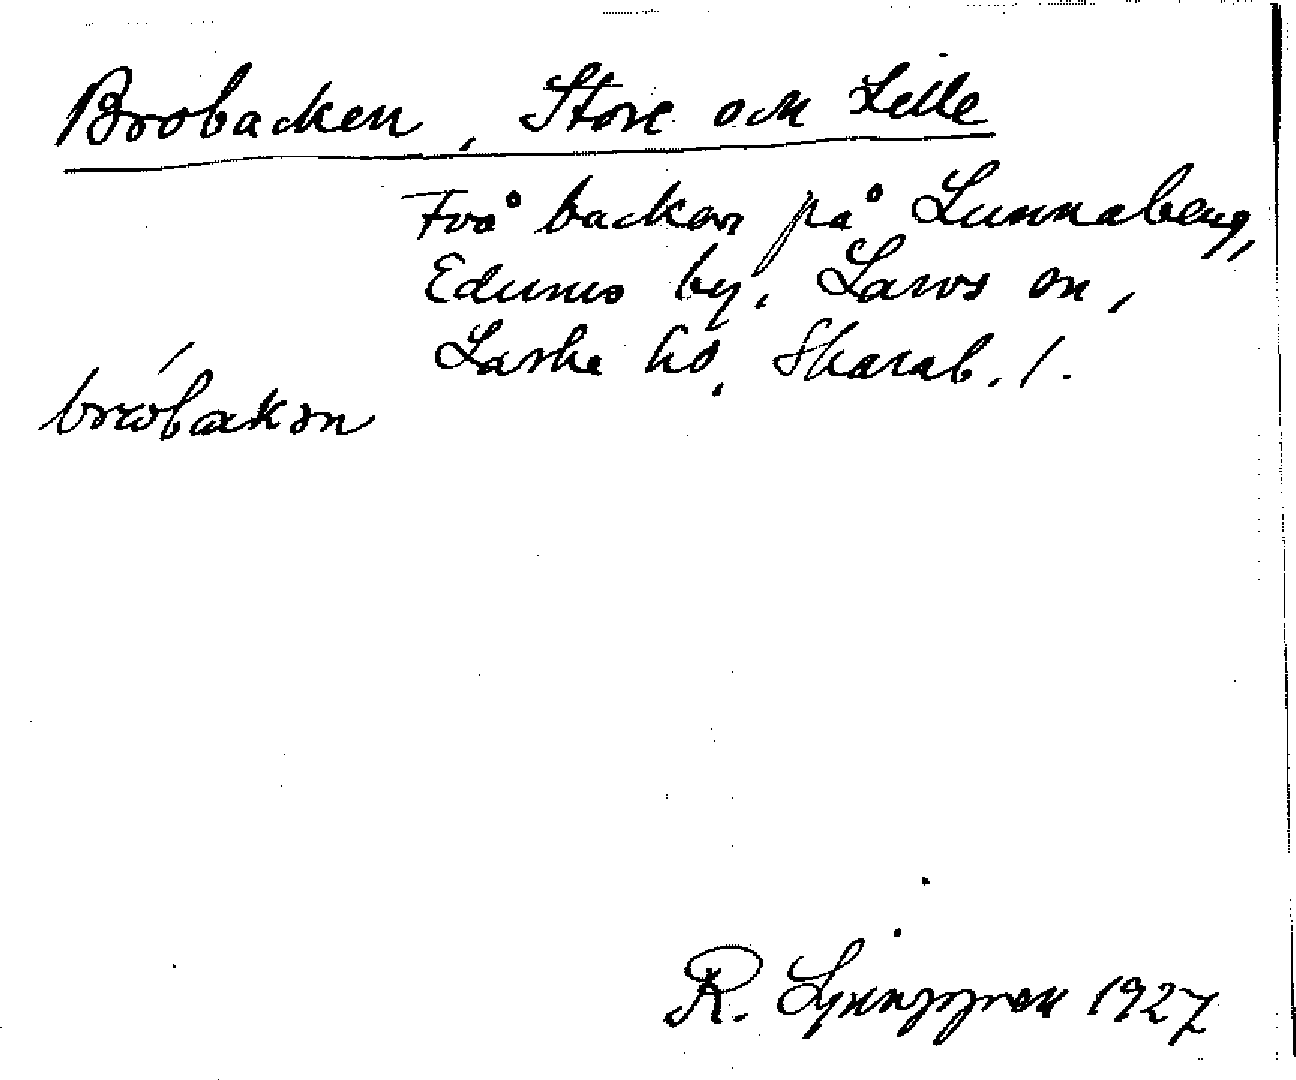 Brobacken, Store och Lille
Två backar på Lunnaberg,
Edums by, Larvs sn,
Laske hd, Skarab. l.
bro̍bakən
R. Ljunggren 1927